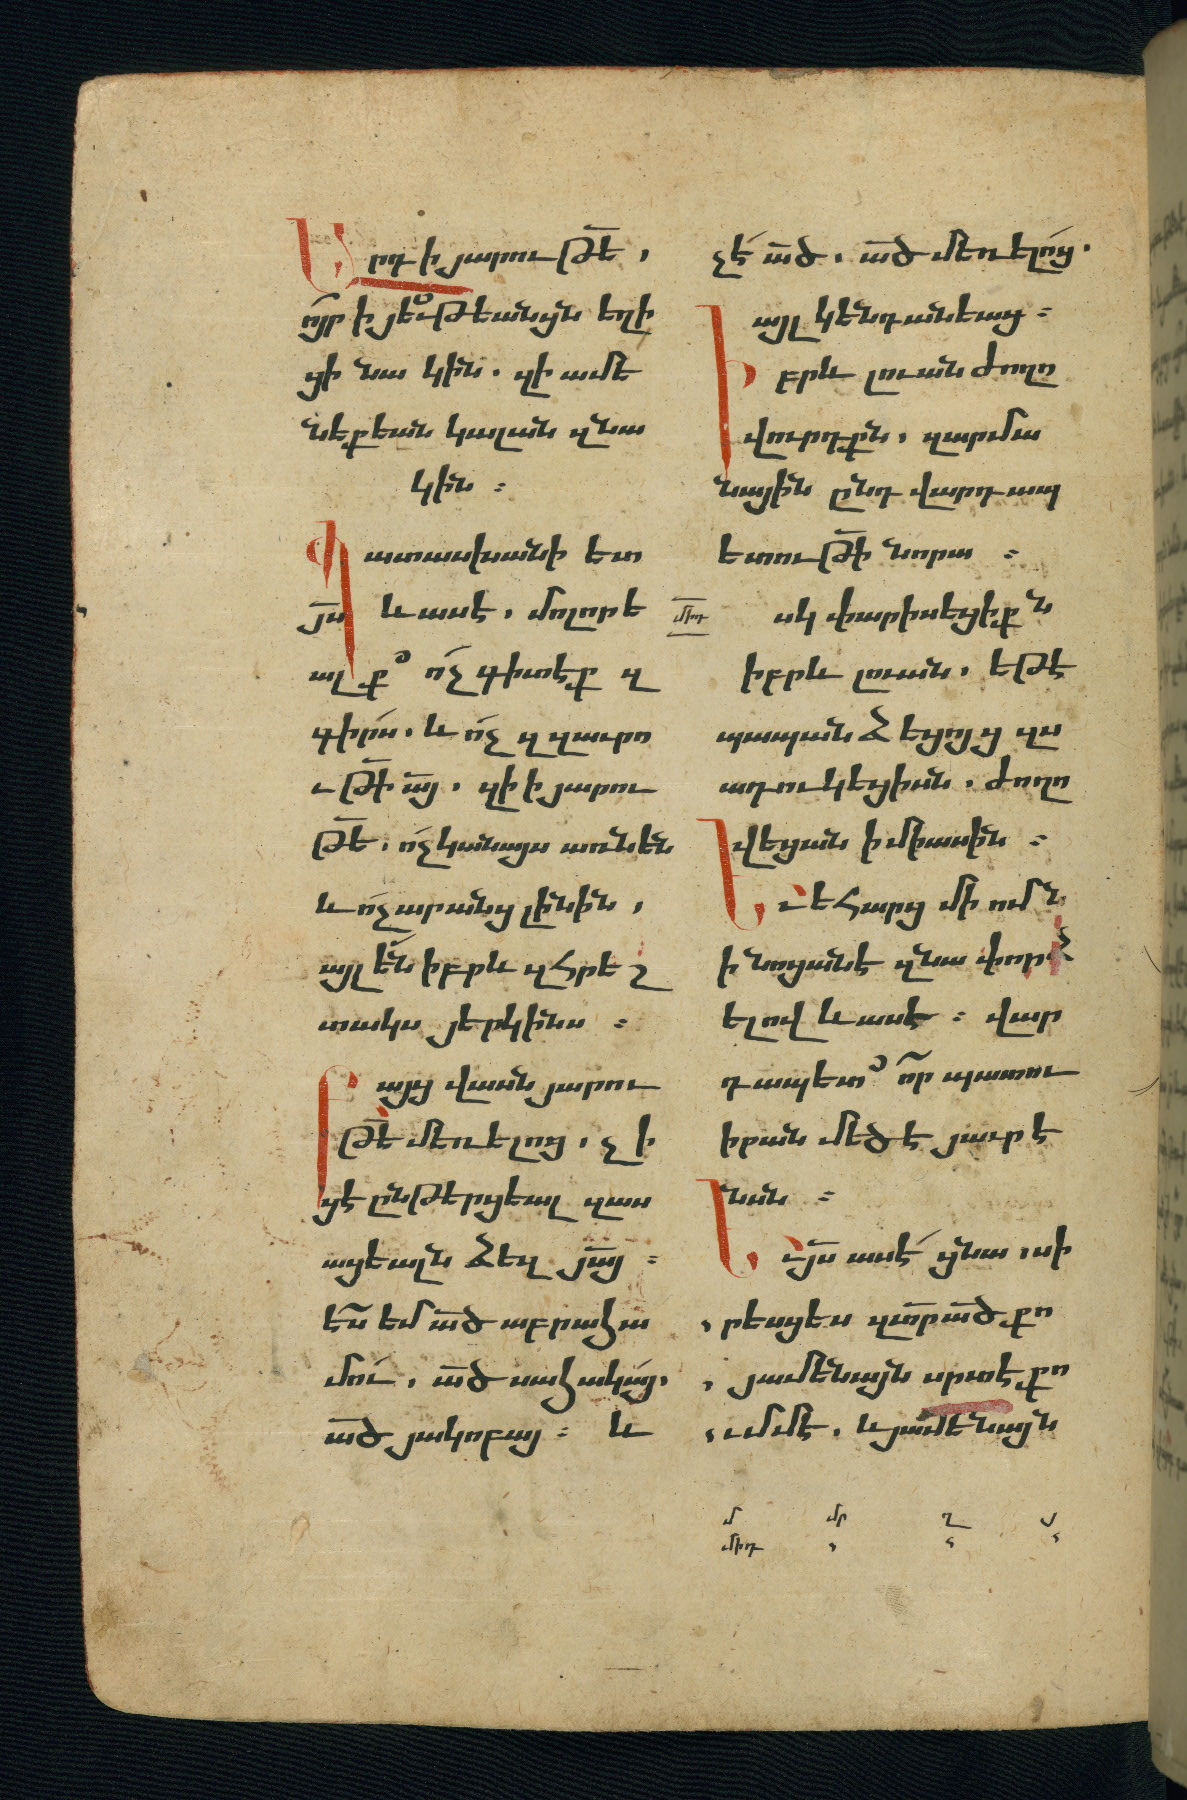 Արդ ի յարութե̄,
ո՞յր ի յեւ՟թեանցն եղի
ցի նա կին. զի ամե
նեքեան կալան զնա
կին :
Պատասխանի ետ
յ̄ս և ասէ, մոլորե
ալ ք՞ ո՛չ գիտէք զ
գիրս. և ո՛չ զզաւրո
ւթի̄ ա̄յ. զի ի յարու
թե̄. ո՛չ կանայս առնեն
և ո՛չ արանց լինին,
այլ են իբրև զհրեշ
տակս յերկինս :
Բայց վասն յարու
թե̄ մեռելոց, չի
ցէ ընթերցեալ զաս
ացեալն ձեզ յա̄յ :
ե̄ս եմ ա̄ծ աբրահա
մու. ա̄ծ սահակայ.
ա̄ծ յակոբայ : և
չէ՛ ա̄ծ. ա̄ծ մեռելոց.
այլ կենդանեաց :
Իբրև լուան ժողո
վուրդքն, զարմա
նային ընդ վարդապ
ետութի̄ նորա :
մ̄իդ
սկ փարիսեցիքն
իբրև լուան, եթէ
պապանձեցոյց զս
ադուկեցիսն, ժողո
վեցան ի միասին :
Եւ եհարց մի ոմն
ի նոցանէ զնա փորձ
ելով և ասէ : վար
դապետ՞ ո՞ր պատու
իրան մեծ է յաւրէ
նսն :
Եւ յ̄ս ասէ՛ ցնա, սի
րեսցես զտ̄ր ա̄ծ քո
յամենայն սրտէ քո
ւմմէ. և յամենայն
մ մր ղ յ
միդ